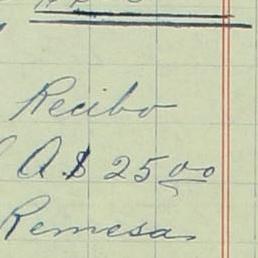 Recibo
A$ 25.00
Remesa